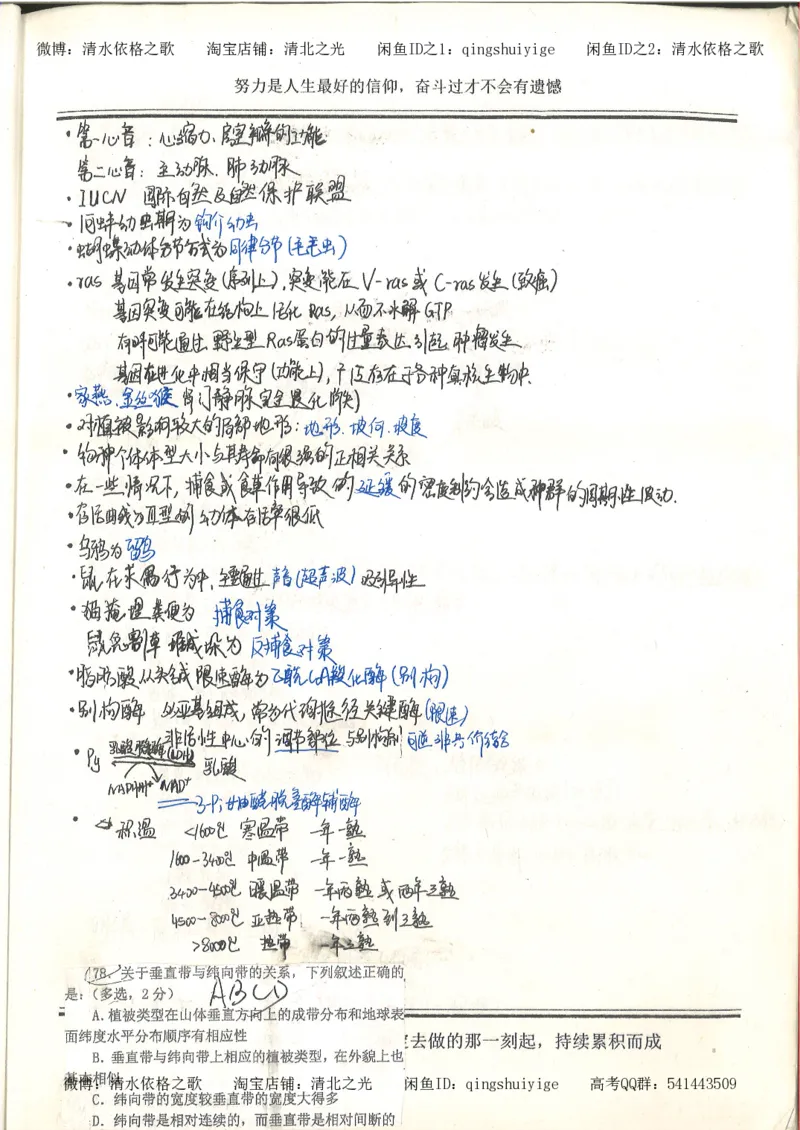 微博：清水依格之歌 淘宝店铺：清北之光 闲鱼ID之1：qingshuiyige 闲鱼ID之2：清水依格之歌
努力是人生最好的信仰，奋斗过才不会有遗憾
·第一心音：心缩力、房室瓣的功能
第二心音：主动脉、肺动脉
·IUCN 国际自然及自然保护联盟
·河蚌幼虫期为钩介幼虫
·蝴蝶幼体分节方式为同律分节(毛毛虫)
·ras 基因常发生突变(序列上)，突变能在V-ras或C-ras发生(致癌)
基因突变可能在结构上活化Ras，从而不水解GTP
有时可能通过野生型Ras蛋白的过量表达引起肿瘤发生
基因在进化中相当保守(功能上)，广泛存在于各种真核生物中.
·家燕、金丝猴肾门静脉完全退化(消失)
·对植被影响较大的局部地形：地形、坡向、坡度
·物种个体体型大小与其寿命有很强的正相关关系
·在一些情况下，捕食或食草作用导致的延缓的密度制约会造成种群的周期性波动.
·存活曲线为Ⅲ型的幼体存活率很低
·乌鸦为留鸟
·鼠在求偶行为中，主要通过声音(超声波)吸引异性
·猫掩埋粪便为捕食对策
鼠兔割草堆成垛为反捕食对策
·脂肪酸从头合成限速酶为乙酰CoA羧化酶(别构)
·别构酶 多亚基组成，常为代谢途径关键酶(限速)
非活性中心的调节部位与别构剂可逆非共价结合
·Py 乳酸脱氢酶(LDH) 乳酸
NADH+H⁺ NAD⁺
3-P-甘油醛脱氢酶辅酶
·积温 <1600℃ 寒温带 一年一熟
1600-3400℃ 中温带 一年一熟
3400-4500℃ 暖温带 一年两熟或两年三熟
4500-8000℃ 亚热带 一年两熟到三熟
>8000℃ 热带 一年三熟
78. 关于垂直带与纬向带的关系，下列叙述正确的
是：(多选，2分) ABCD
A.植被类型在山体垂直方向上的成带分布和地球表
面纬度水平分布顺序有相应性
去做的那一刻起，持续累积而成
B.垂直带与纬向带上相应的植被类型，在外貌上也
基本相似
微博：清水依格之歌 淘宝店铺：清北之光 闲鱼ID：qingshuiyige 高考QQ群：541443509
C.纬向带的宽度较垂直带的宽度大得多
D.纬向带是相对连续的，而垂直带是相对间断的